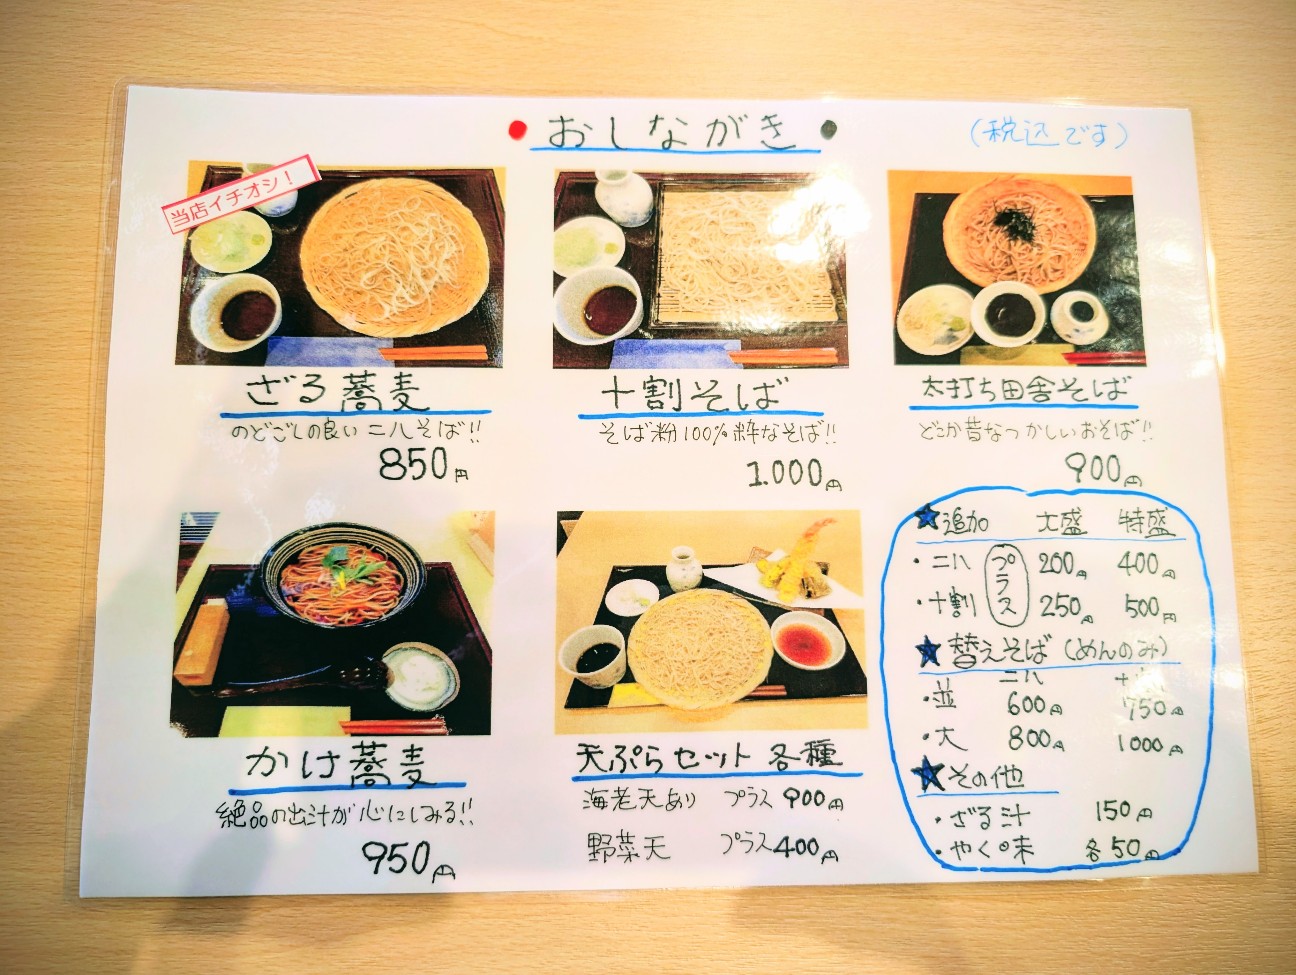 おしながき
(税込です)
当店イチオシ!
ざる蕎麦
のどごしの良い 二八そば!!
850円
十割そば
そば粉100% 粋なそば!!
1.000円
太打ち田舎そば
どこか昔なつかしいおそば!!
900円
かけ蕎麦
絶品の出汁が心にしみる!!
950円
天ぷらセット 各種
海老天あり プラス 900円
野菜天 プラス400円
★追加 大盛 特盛
・二八 プラス 200円 400円
・十割 250円 500円
★替えそば(めんのみ)
二八 十割
・並 600円 750円
・大 800円 1000円
★その他
・ざる汁 150円
・やく味 各50円